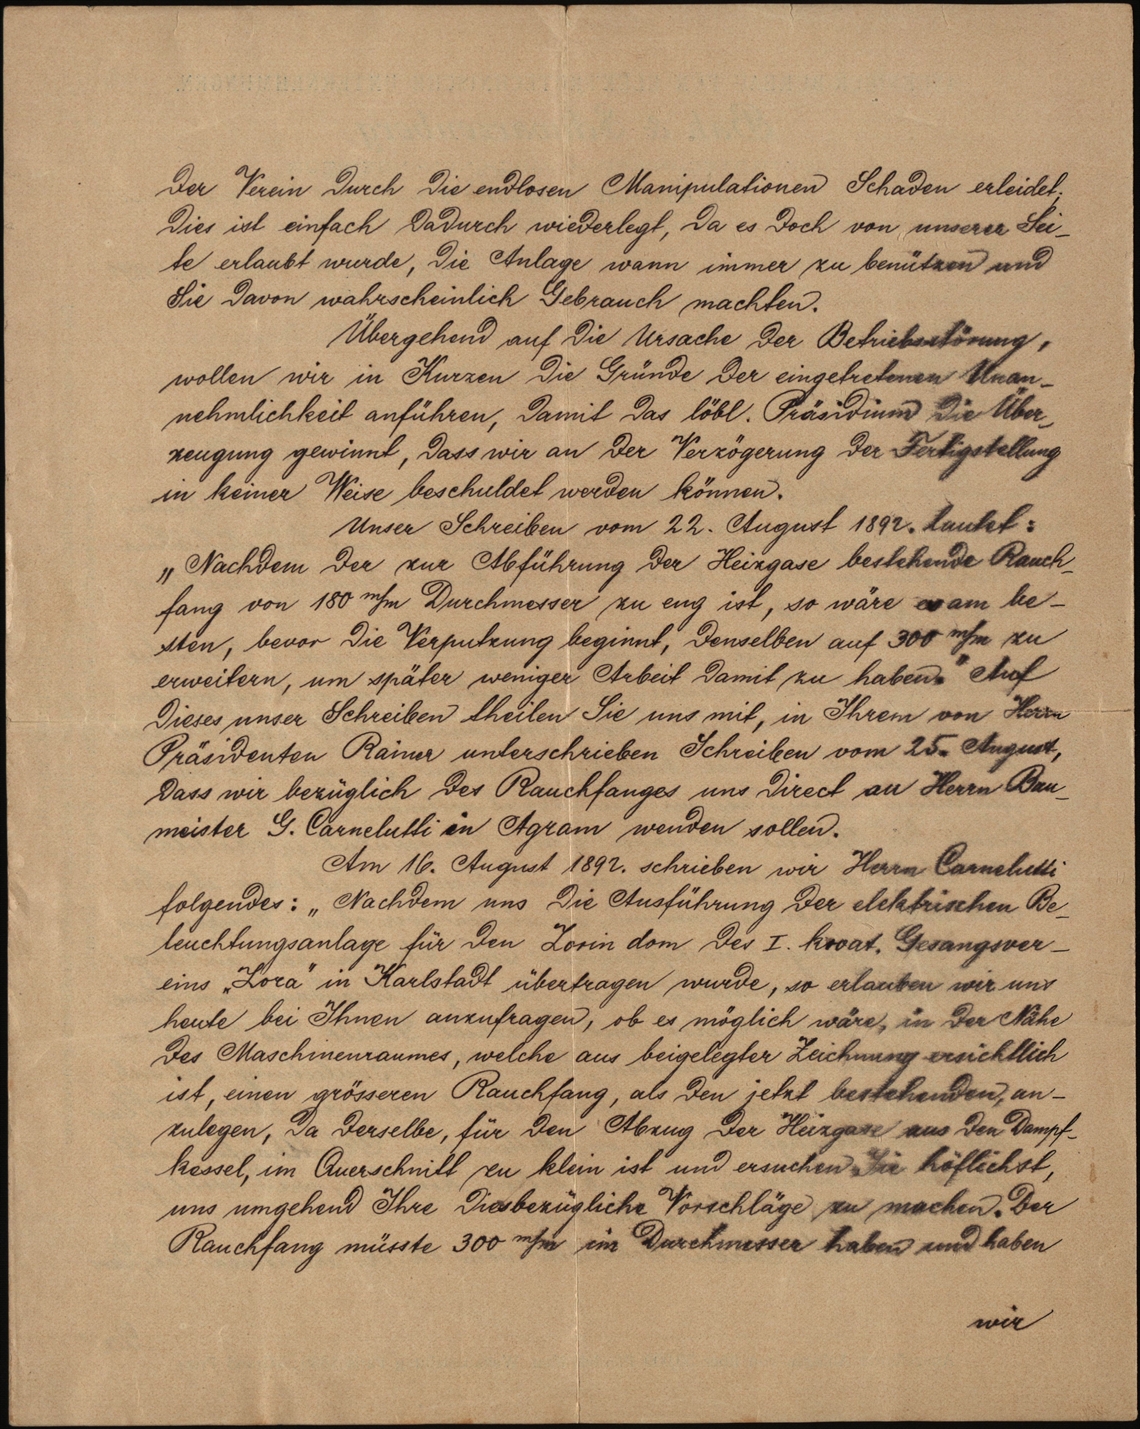 der Verein durch die endlosen Manipulationen Schaden erleidet;
dies ist einfach dadurch wiederlegt, da es doch von unserer Sei-
te erlaubt wurde, die Anlage wann immer zu benützen und
Sie davon wahrscheinlich Gebrauch machten.
Übergehend auf die Ursache der Betriebsstörung,
wollen wir in Kurzen die Gründe der eingetretenen Unan-
nehmlichkeit anführen, damit das löbl. Präsidium die Über-
zeugung gewinnt, dass wir an der Verzögerung der Fertigstellung
in keiner Weise beschuldet werden können.
Unser Schreiben vom 22. August 1892. lautet:
„Nachdem der zur Abführung der Heizgase bestehende Rauch-
fang von 180 m/m Durchmesser zu eng ist, so wäre es am be-
sten, bevor die Verputzung beginnt, denselben auf 300 m/m zu
erweitern, um später weniger Arbeit damit zu haben." Auf
dieses unser Schreiben theilen Sie uns mit, in Ihrem von Herrn
Präsidenten Rainer unterschrieben Schreiben vom 25. August,
dass wir bezüglich des Rauchfanges uns direct an Herrn Bau-
meister G. Carnelutti in Agram wenden sollen.
Am 16. August 1892. schrieben wir Herrn Carnelutti
folgendes: „Nachdem uns die Ausführung der elektrischen Be-
leuchtungsanlage für den Zorin dom des I. kroat. Gesangsver-
eins „Zora" in Karlstadt übertragen wurde, so erlauben wir uns
heute bei Ihnen anzufragen, ob es möglich wäre, in der Nähe
des Maschinenraumes, welche aus beigelegter Zeichnung ersichtlich
ist, einen grösseren Rauchfang, als den jetzt bestehenden, an-
zulegen, da derselbe, für den Abzug der Heizgase aus den Dampf-
kessel, im Querschnitt zu klein ist und ersuchen Sie höflichst,
uns umgehend Ihre diesbezügliche Vorschläge zu machen. Der
Rauchfang müsste 300 m/m im Durchmesser haben und haben
wir